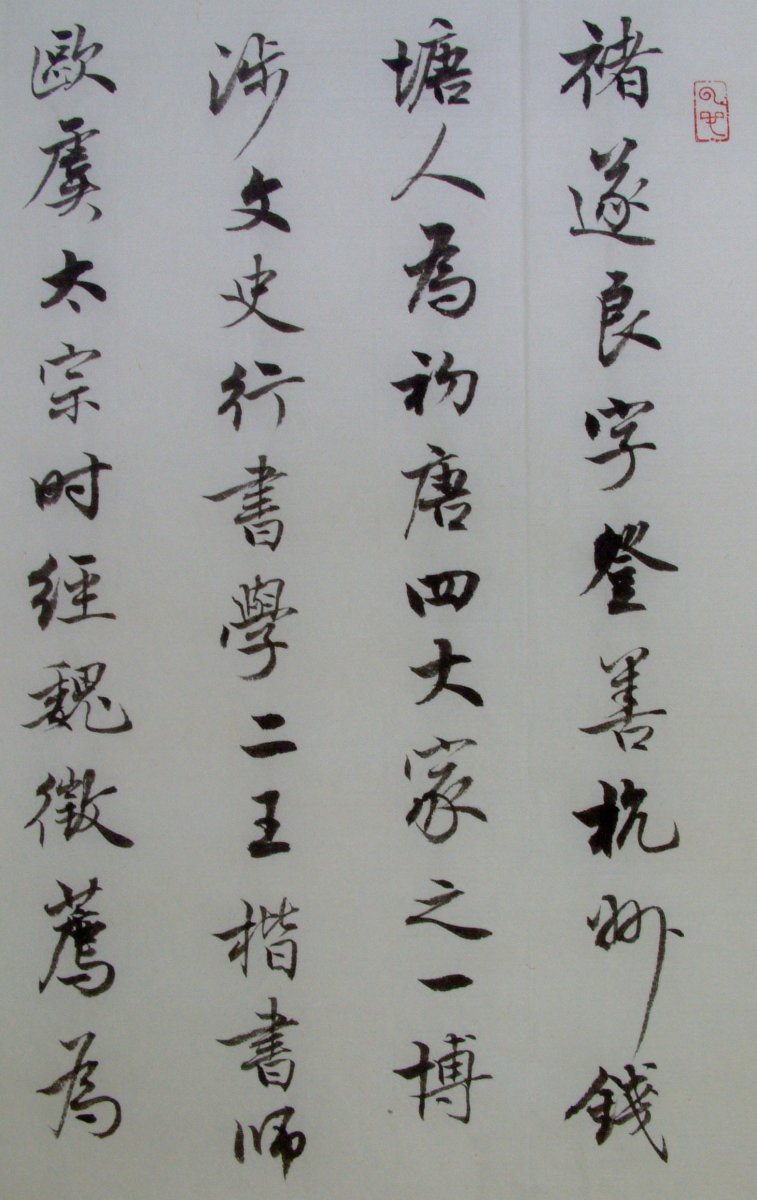 褚遂良字登善杭州錢
塘人為初唐四大家之一博
涉文史行書學二王楷書师
歐虞太宗时經魏徵薦為